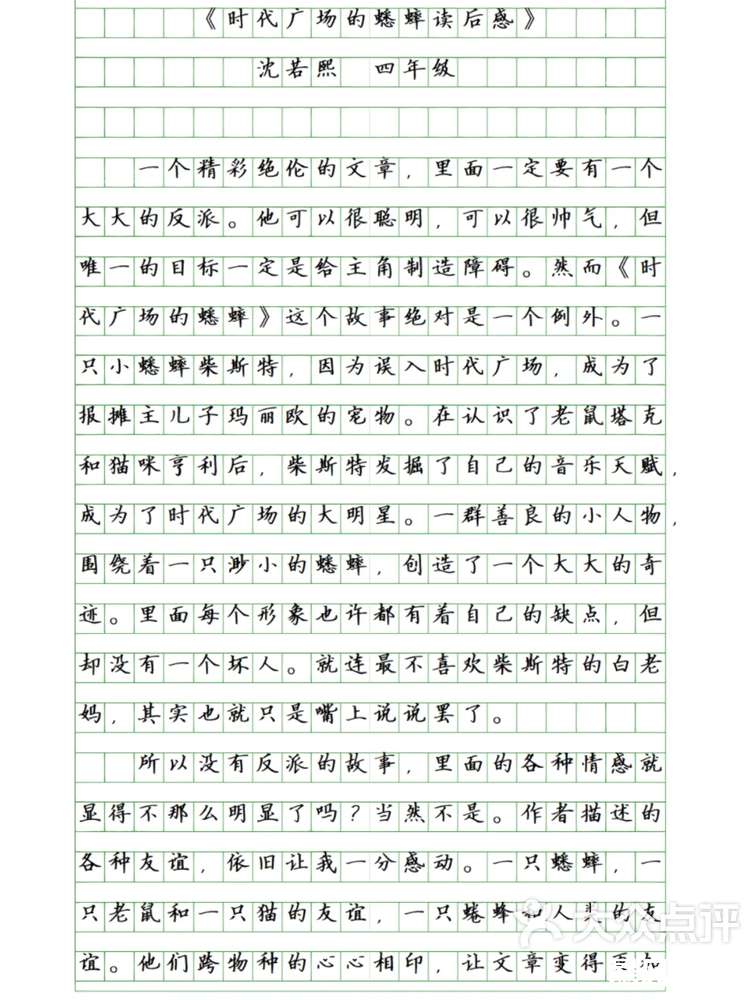 《时代广场的蟋蟀读后感》
沈若熙 四年级
一个精彩绝伦的文章，里面一定要有一个
大大的反派。他可以很聪明，可以很帅气，但
唯一的目标一定是给主角制造障碍。然而《时
代广场的蟋蟀》这个故事绝对是一个例外。一
只小蟋蟀柴斯特，因为误入时代广场，成为了
报摊主儿子玛丽欧的宠物。在认识了老鼠塔克
和猫咪亨利后，柴斯特发掘了自己的音乐天赋，
成为了时代广场的大明星。一群善良的小人物，
围绕着一只渺小的蟋蟀，创造了一个大大的奇
迹。里面每个形象也许都有着自己的缺点，但
却没有一个坏人。就连最不喜欢柴斯特的白老
妈，其实也就只是嘴上说说罢了。
所以没有反派的故事，里面的各种情感就
显得不那么明显了吗？当然不是。作者描述的
各种友谊，依旧让我一分感动。一只蟋蟀，一
只老鼠和一只猫的友谊，一只蜷蜂和人类的友
谊。他们跨物种的心心相印，让文章变得更加
大众点评